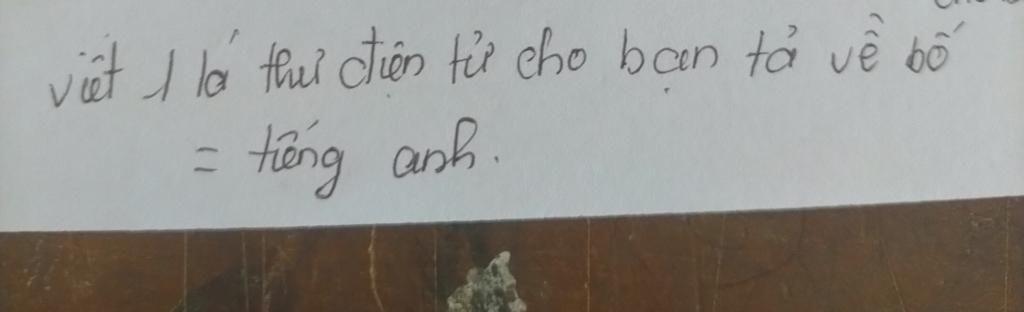 viết 1 lá thư điện tử cho bạn tả về bố
= tiếng anh.